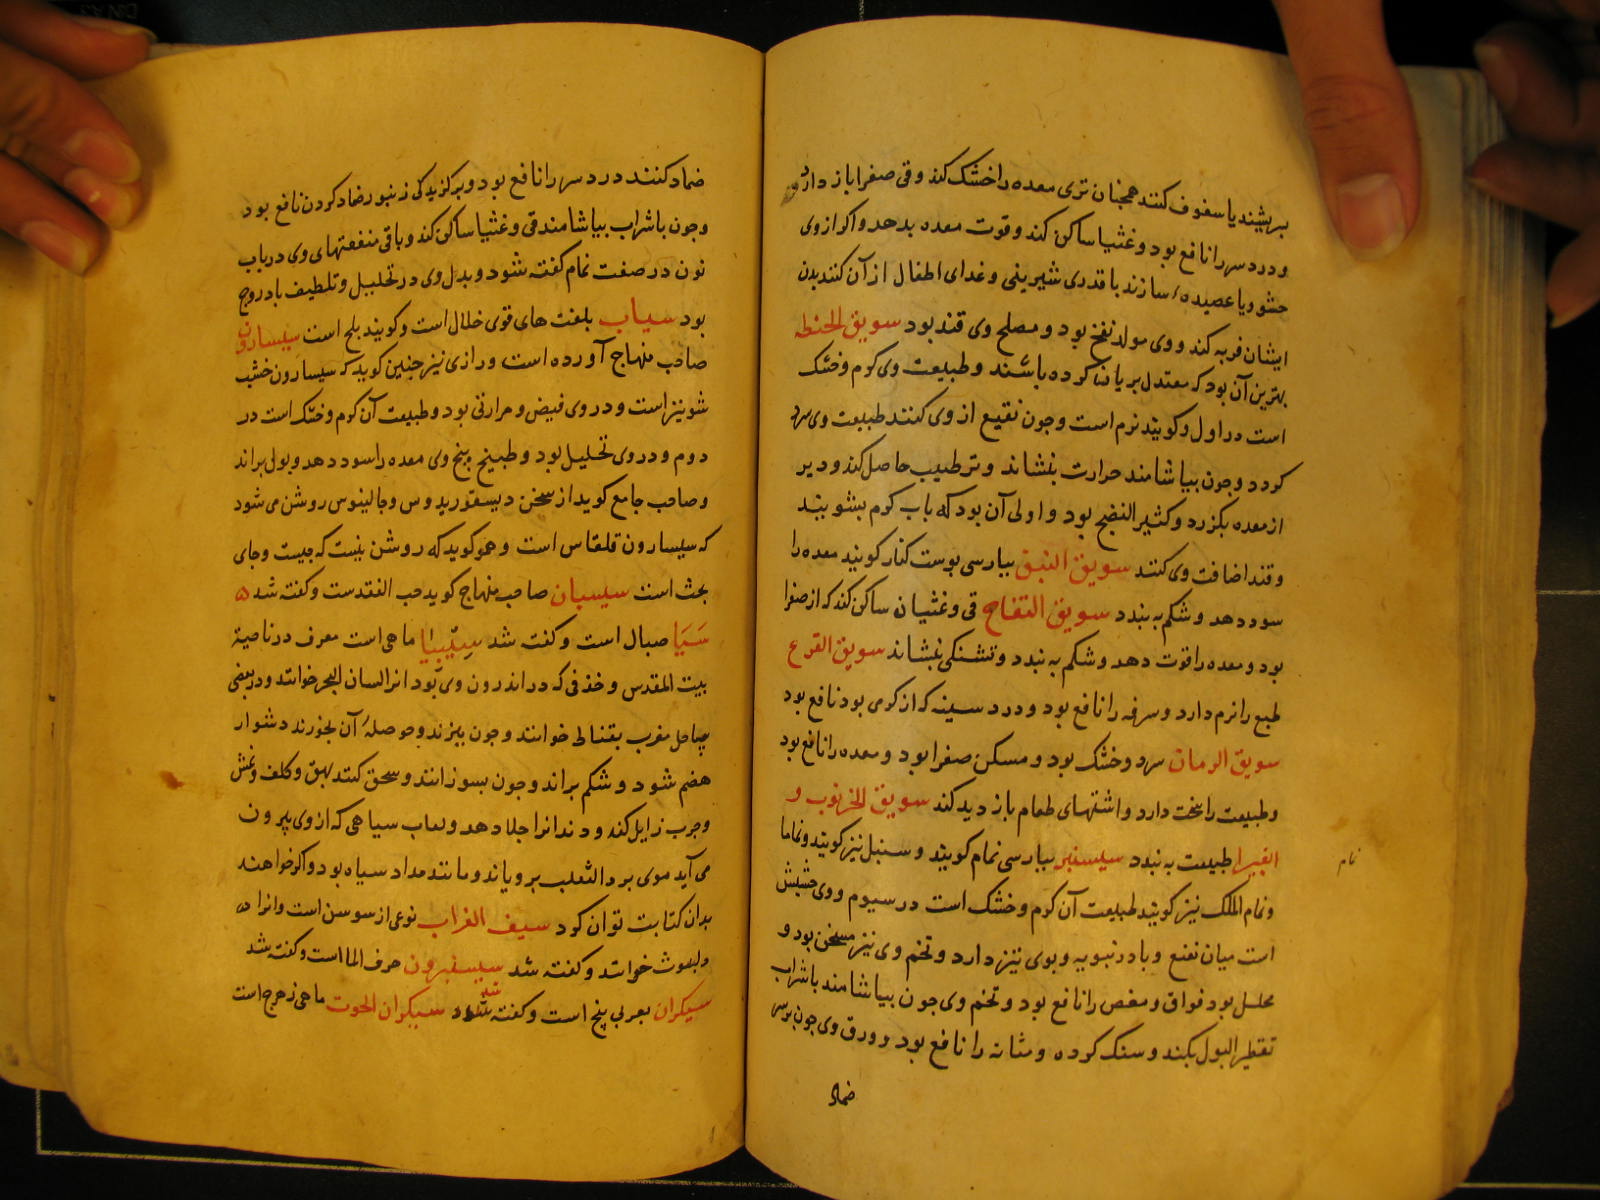 بریشند یا سفوف کنند همچنان تری معده را خشک کند و قی صفرا باز دارد
و درد سر را نافع بود و غثیا ساکن کند و قوت معده بدهد و اکر ازوی
حشو و یا عصیده سازند با قدری شیرینی و غدای اطفال از آن کنند بدن
ایشان فربه کند و وی مولد نفخ بود و مصلح وی قند بود سویق الحنطه
بهترین آن بود که معتدل بریان کرده باشند و طبیعت وی کرم و خشک
است در اول و کویند نرم است و جون نقیع از وی کنند طبیعت وی سرد
کردد و جون بیاشامند حرارت بنشاند و ترطیب حاصل کند و دیر
از معده بکزرد و کثیر النضج بود و اولی آن بود که باب کرم بشویند
و قند اضافت وی کنند سویق النبق بپارسی بوست کنار کویند معده را
سود دهد و شکم به بندد سویق التفاح قی و غثیان ساکن کند که از صفرا
بود و معده را قوت دهد و شکم به بندد و تشنکی بنشاند سویق القرع
طبع را نرم دارد و سرفه را نافع بود و درد سینه که از کرمی بود نافع بود
سویق الرمان سرد و خشک بود و مسکن صفرا بود و معده را نافع بود
و طبیعت را سخت دارد و اشتهای طعام باز دید کند سویق الخرنوب و
الغبیرا طبیعت به بندد سیسنبر بپارسی نمام کویند و سنبل نیز کویند و نماما
نمام
و نمام الملک نیز کویند طبیعت آن کرم و خشک است در سیوم و وی حشیش
است میان نعنع و بادرنبویه و بوی نیز دارد و تخم وی نیز مسخن بود و
محلل بود فواق و مغص را نافع بود و تخم وی جون بیاشامند با شراب
تقطیر البول بکند و سنک کرده و مثانه را نافع بود و ورق وی جون بر سر
ضماد
ضماد کنند درد سر را نافع بود و بر کزیدکی زنبور ضماد کردن نافع بود
و جون با شراب بیاشامند قی و غثیا ساکن کند و باقی منفعتهای وی در باب
نون در صفت نمام کفته شود و بدل وی در تحلیل و تلطیف بادروج
بود سیاب بلغت های قوی خلال است و کویند بلح است سیسارون
صاحب منهاج آورده است و رازی نیز جنین کوید که سیسارون خشب
شونیز است و در وی قبض و مرارتی بود و طبیعت آن کرم و خشک است در
دوم و در وی تحلیل بود و طبیخ بیخ وی معده را سود دهد و بول براند
و صاحب جامع کوید از سخن دیسقوریدوس و جالینوس روشن می شود
که سیسارون قلقاس است و هم کوید که روشن نیست که جیست و جای
بحث است سیسبان صاحب منهاج کوید حب الفقدست و کفته شد
سیا صبال است و کفته شد سیبیا ماهی است معرف در ناحیة
بیت المقدس و خذفی که در اندرون وی بود انرا لسان البحر خوانند و در بعضی
سواحل مغرب بقناطی خوانند و جون بیزند و حوصلهٔ آن بخورند دشوار
هضم شود و شکم براند و جون بسوزانند و سحق کنند بهق و کلف و نمش
و جرب زایل کند و دندانرا جلا دهد و لعاب سیاهی که از وی بیرون
می آید موی بر داء الثعلب برویاند و مانند مداد سیاه بود و اکر خواهند
بدان کتابت توان کرد سیف الغراب نوعی از سوسن است و انرا
دلبوث خوانند و کفته شد سیسنبرون حرف الما است و کفته شد
سیکران بعربی بنج است و کفته شد سیکران الحوت ماهی زهرج است